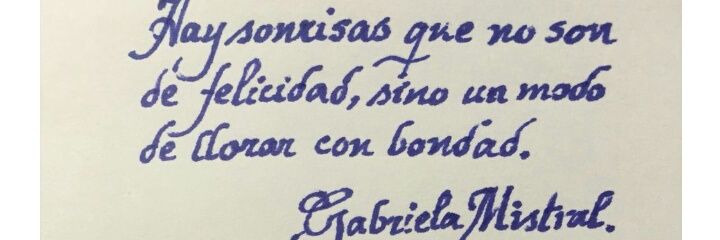 Hay sonrisas que no son
de felicidad, sino un modo
de llorar con bondad.
Gabriela Mistral.